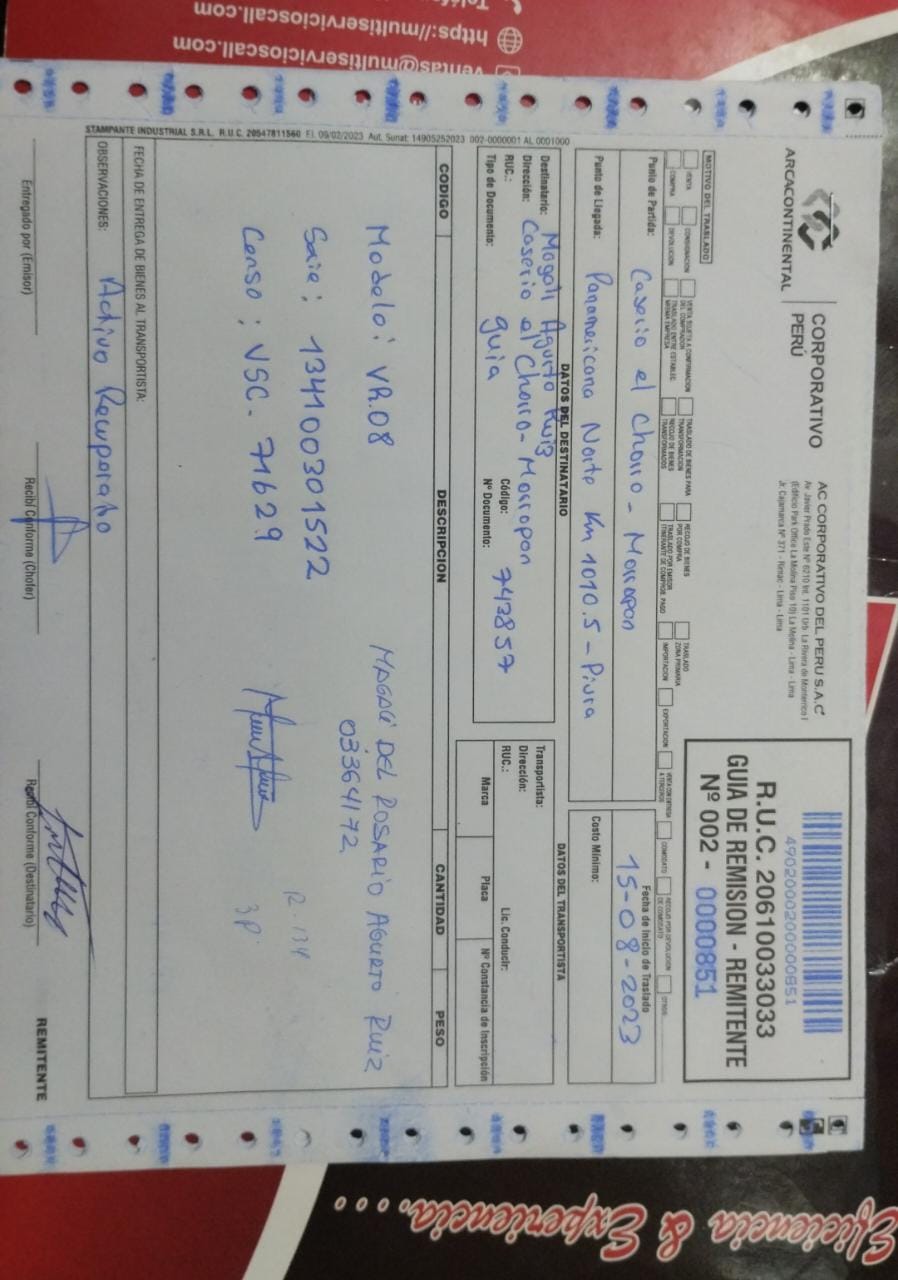 ARCACONTINENTAL
CORPORATIVO
PERÚ
AC CORPORATIVO DEL PERU S.A.C
Av. Javier Prado Este Nº 6210 Int. 1101 Urb. La Rivera de Monterrico I
(Edificio Park Office La Molina Piso 10) La Molina - Lima - Lima
Jr. Cajamarca Nº 371 - Rimac - Lima - Lima
4902000200000851
R.U.C. 20610033033
GUIA DE REMISION - REMITENTE
Nº 002 - 0000851
MOTIVO DEL TRASLADO
VENTA
CONSIGNACION
VENTA SUJETA A CONFIRMACION DEL COMPRADOR
TRASLADO DE BIENES PARA TRANSFORMACION
RECOJO DE BIENES POR COMPRA
TRASLADO ZONA PRIMARIA
COMPRA
DEVOLUCION
TRASLADO ENTRE ESTABLEC. MISMA EMPRESA
RECOJO DE BIENES TRANSFORMADOS
TRASLADO POR EMISOR ITINERANTE DE COMPROB. PAGO
IMPORTACION
EXPORTACION
VENTA CON ENTREGA A TERCEROS
COMODATO
RECOJO POR DEVOLUCION DE COMODATO
OTROS
Punto de Partida: Caserio el Chorro - Morropon
Fecha de Inicio de Traslado
15-08-2023
Punto de Llegada: Panamericana Norte Km 1010.5 - Piura
Costo Mínimo:
DATOS DEL DESTINATARIO
Destinatario: Magali Agurto Ruiz
Dirección: Caserio el Chorro - Morropon
RUC.:
Código:
Tipo de Documento: guia
Nº Documento: 743857
DATOS DEL TRANSPORTISTA
Transportista:
Dirección:
RUC.:
Lic. Conducir:
Marca
Placa
Nº Constancia de Inscripción
CODIGO
DESCRIPCION
CANTIDAD
PESO
Modelo: VR.08
MAGALI DEL ROSARIO AGURTO RUIZ
03364172
Serie: 134100301522
Censo: VSC-71629
R 134
3P
FECHA DE ENTREGA DE BIENES AL TRANSPORTISTA:
OBSERVACIONES: Activo Recuperado
STAMPANTE INDUSTRIAL S.R.L. R.U.C. 20547811560 F.I. 09/02/2023 Aut. Sunat: 14905252023 002-0000001 AL 0001000
Entregado por (Emisor)
Recibí Conforme (Chofer)
Recibí Conforme (Destinatario)
REMITENTE
https://multiservicioscall.com
ventas@multiservicioscall.com
Eficiencia & Experiencia....